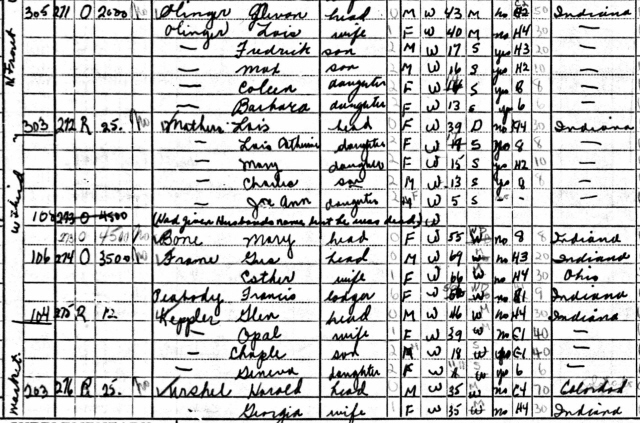 305 271 O 2000 no Olinger Glenn head 0 M W 43 M no 50 Indiana
Olinger Lois wife 1 F W 40 M no H4 30 —
— Fredrick son 2 M W 17 S yes H3 20 —
— Max son 2 M W 16 S yes H2 10 —
— Coleen daughter 2 F W 14 S yes 8 8 —
— Barbara daughter 2 F W 13 S yes 6 6 —
303 272 R 25. no Mathers Lois head 0 F W 39 D no H4 30 Indiana
— Lois Catherine daughter 2 F W S yes 8 8 —
— Mary daughter 2 F W 15 S yes H2 10 —
— Charles son 2 M W 13 S yes 8 8 —
— Joe Ann daughter 2 F W 5 S - - —
108 273 O 4500 (Had given Husbands name but he was dead) W
273 O 4500 no Bone Mary head 0 F W 55 no 8 8 Indiana
106 274 O 3500 no head 0 M W 69 no H3 20 Indiana
— Esther wife 1 F W 66 no H4 30 Ohio
Peabody Francis lodger 6 F W no 9 Indiana
104 275 R 12 Keppler Glen head 0 M W 46 no H4 30 Indiana
— Opal wife 1 F W 39 no C1 40 —
— son 2 M W 18 yes C1 40 —
— Geneva daughter 2 F W yes 6 6 —
203 276 R 25. no Harold head 0 M W 35 no C4 70 Colorado
— Georgia wife 1 F W 35 no H4 30 Indiana
N Front
Market